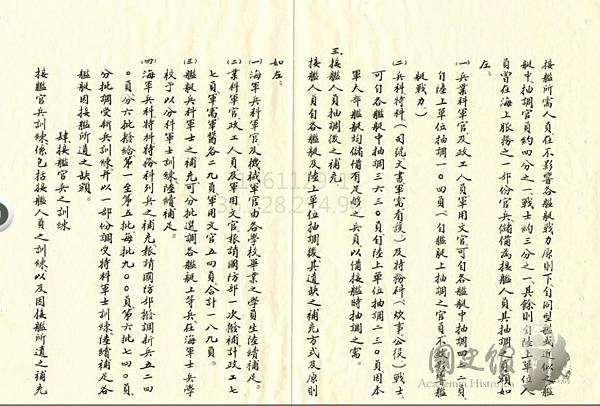 接艦所需人員在不影響各艦艇戰力原則下自同型艦或近似之艦
艇中抽調官員約四分之一戰士約三分之一其餘則自陸上人
員曾在海上服務之一部份官兵儲備為接艦人員其抽調之員額如
左：
(一)兵業科軍官及政工人員軍用文官可自各艦艇中抽調四一一員
自陸上單位抽調一一〇四員(自艦艇上抽調之官員不致影響艦
艇戰力)
(二)兵科特科(司號文書軍需看護)及特務科(炊事公役)戰士
可自各艦艇中抽調三六三〇員自陸上單位抽調二三〇員因本
軍大部艦艇均儲備有足够之兵員以備接艦時抽調之需。
三、接艦人員抽調後之補充
接艦人員自各艦艇及陸上單位抽調後其遺缺之補充方式及原則
如左：
(一)海軍兵科軍官及機械軍官由各學校畢業之學員生陸續補足。
(二)業科軍官政工人員及軍用文官報請國防部一次撥補計政工七
七員軍需軍醫各二九員軍用文官五四員合計一八九員。
(三)艦艇兵科軍士之補充可分批選調各艦艇上等兵在海軍士兵學
校予以分科軍士訓練陸續補足。
(四)海軍兵科特科特務科列兵之補充報請國防部撥調新兵五二四
〇員分六批撥給第一至第五批每批九〇〇員第六批七四〇員
分批調受新兵訓練并以一部份調受特科軍士訓練陸續補足各
艦艇因接艦所遺之缺額。
肆接艦官兵之訓練
接艦官兵訓練係包括接艦人員之訓練以及因接艦所遺之補充
國史館
Academia Historica